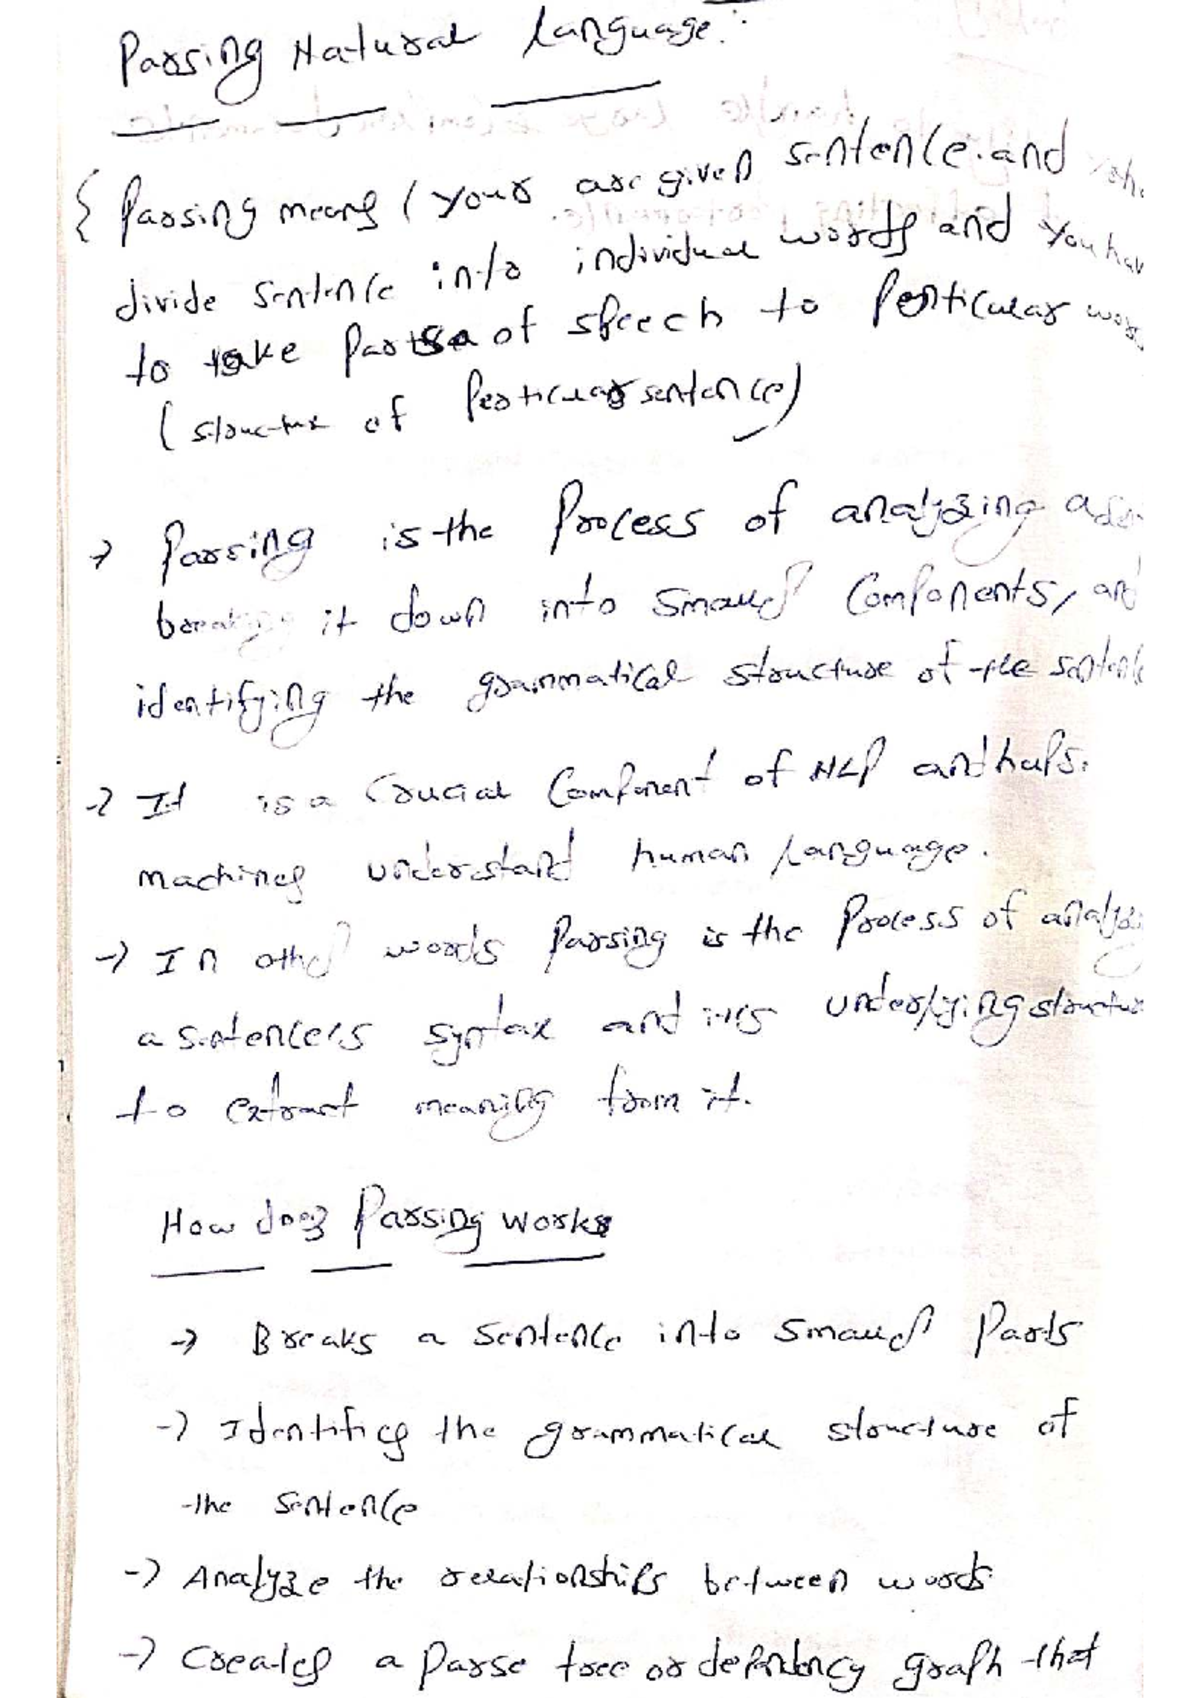 Parsing Natural Language:
{ Parsing means ( your are given sentence. and
divide sentence into individual words and you hav
to take Parts of speech to Perticular wor
( structure of Perticular sentence)
→ Parsing is the Process of analyzing a
breaking it down into smaller Components, and
identifying the grammatical structure of the sentence
→ It is a Crucial Component of NLP and helps.
machines understand human language.
→ In other words Parsing is the Process of analyzi
a sentence's syntax and its underlying structure
to extract meaning from it.
How does Parsing works
→ Breaks a sentence into smaller Parts
→ Identifies the grammatical structure of
the sentence
→ Analyze the relationships between words
→ Creates a Parse tree or dependency graph that